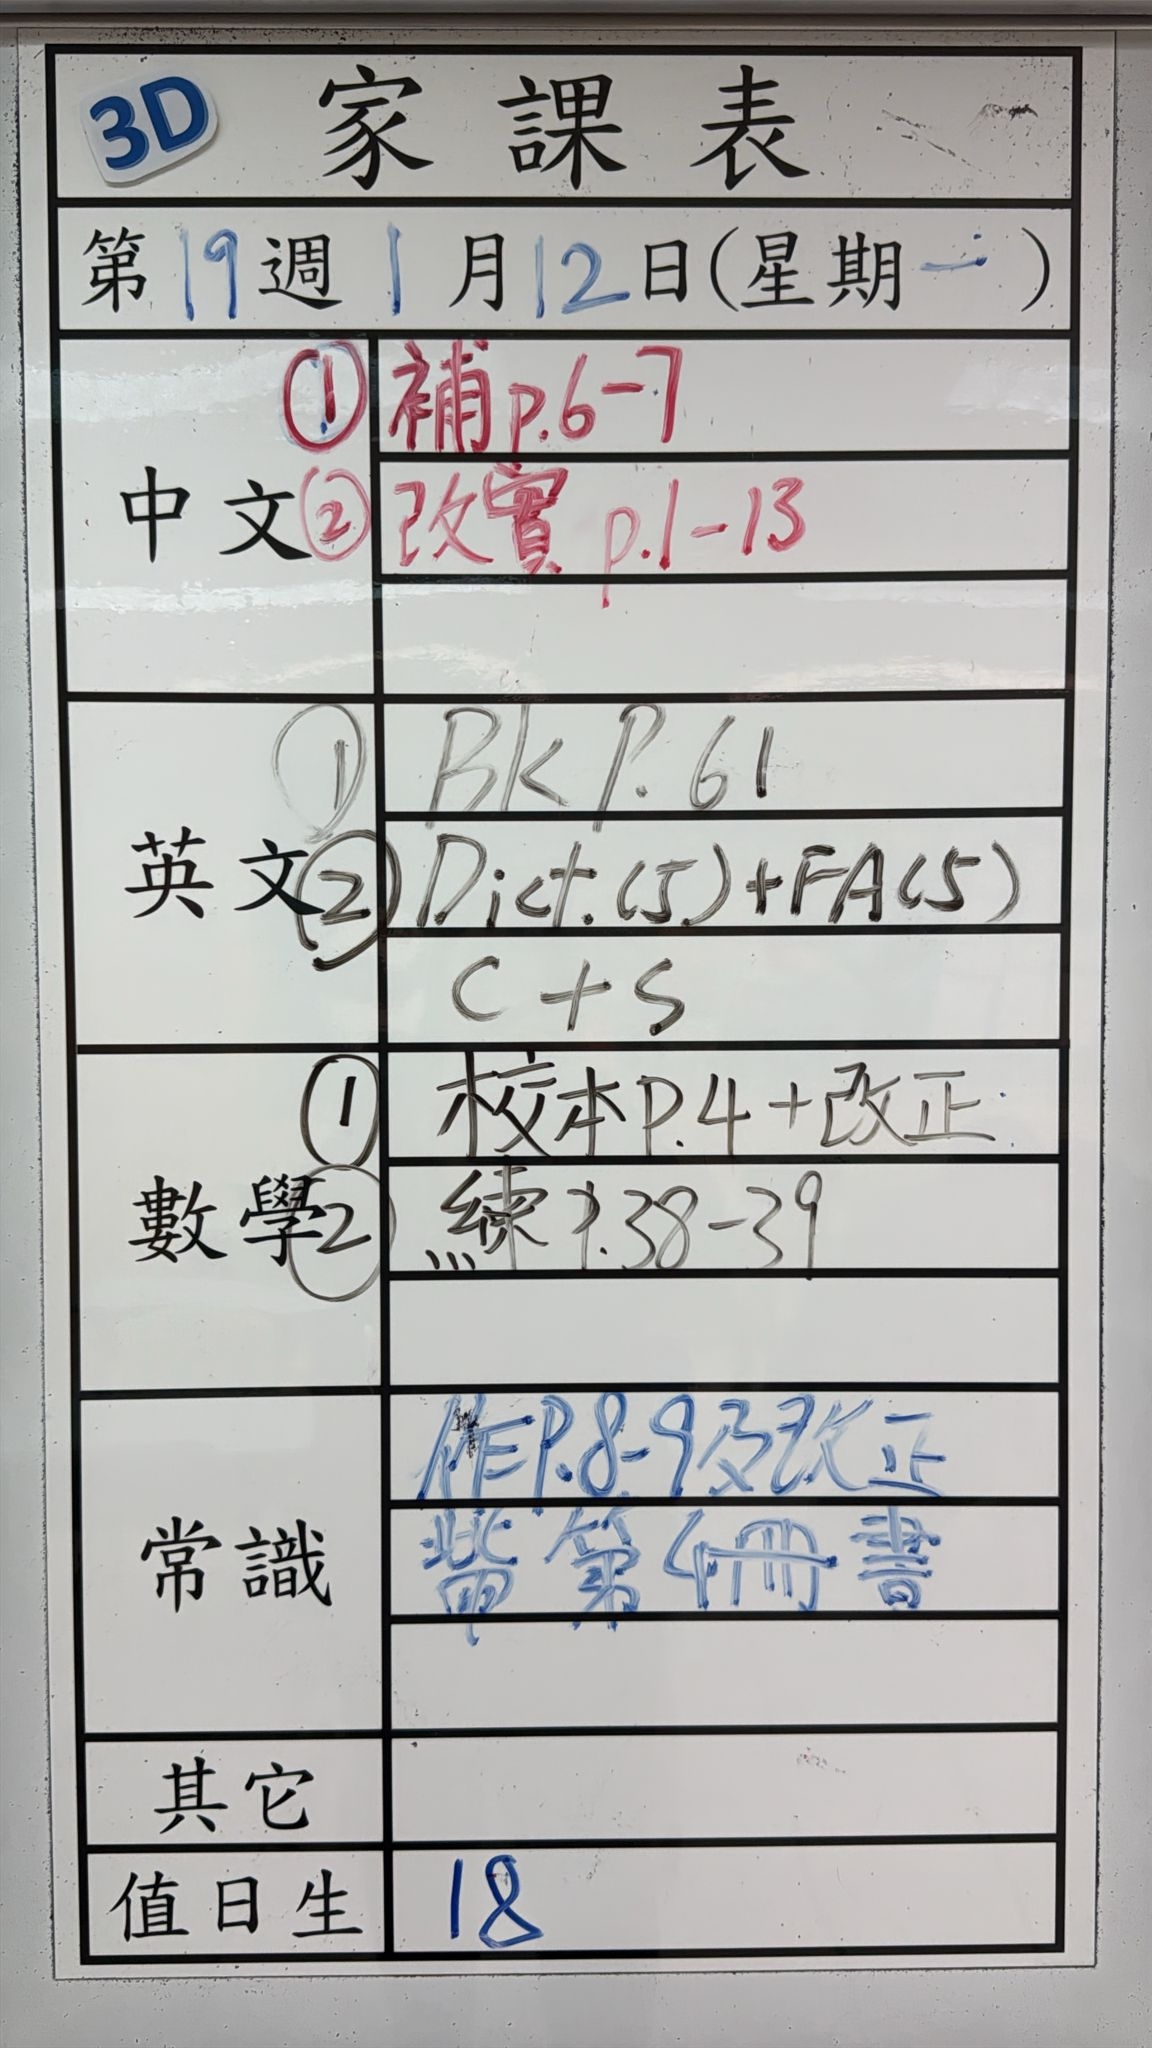 3D 家課表
第19週 1月12日(星期一)
中文
① 補p.6-7
② 改實 p.1-13
英文
① BK P.61
② Dict.(5)+FA(5)
C+S
數學
① 校本P.4+改正
② 練P.38-39
常識
作P.8-9及改正
帶第4冊書
其它
值日生 18